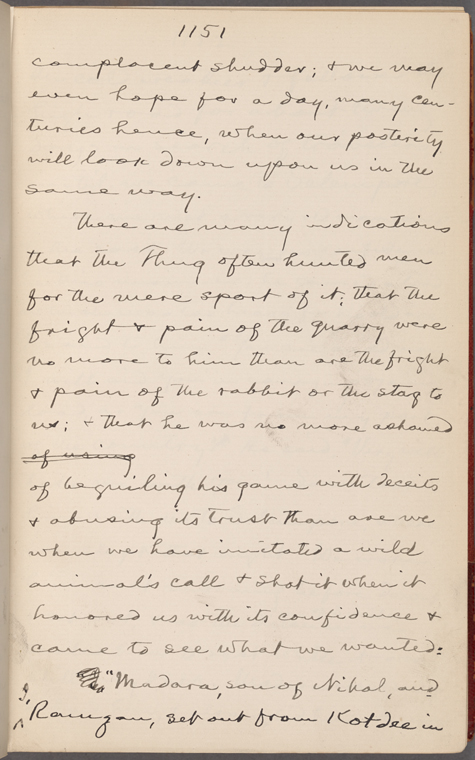 1151
complacent shudder; & we may
even hope for a day, many cen-
turies hence, when our posterity
will look down upon us in the
same way.
There are many indications
that the Thug often hunted men
for the mere sport of it; that the
fright & pain of the quarry were
no more to him than are the fright
& pain of the rabbit or the stag to
us; & that he was no more ashamed
of using
of beguiling his game with deceits
& abusing its trust than are we
when we have imitated a wild
animal's call & shot it when it
honored us with its confidence &
came to see what we wanted:
"Madara, son of Nihal, and
Ramzan, set out from Kotdee in